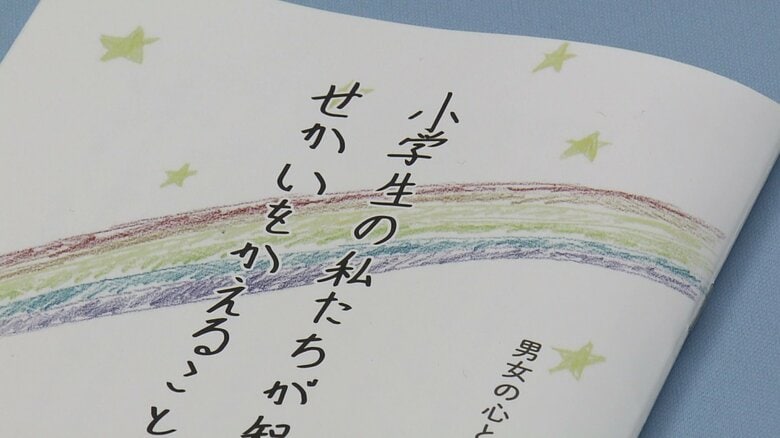 小学生の私たちが
せかいをかえること
男女の心と